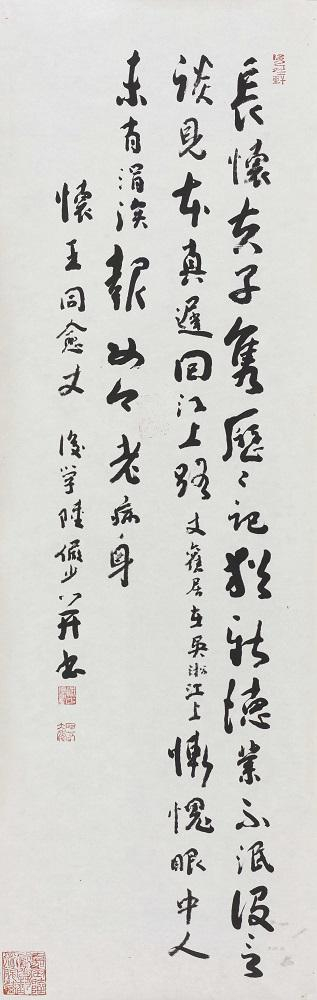 長懷夫子雋歷〻記猶新德業不泯沒言
談見本真遲回江上路丈舊居在吳淞江上慚愧眼中人
未有涓埃報如今老病身
懷王同愈丈 後學陸儼少并書